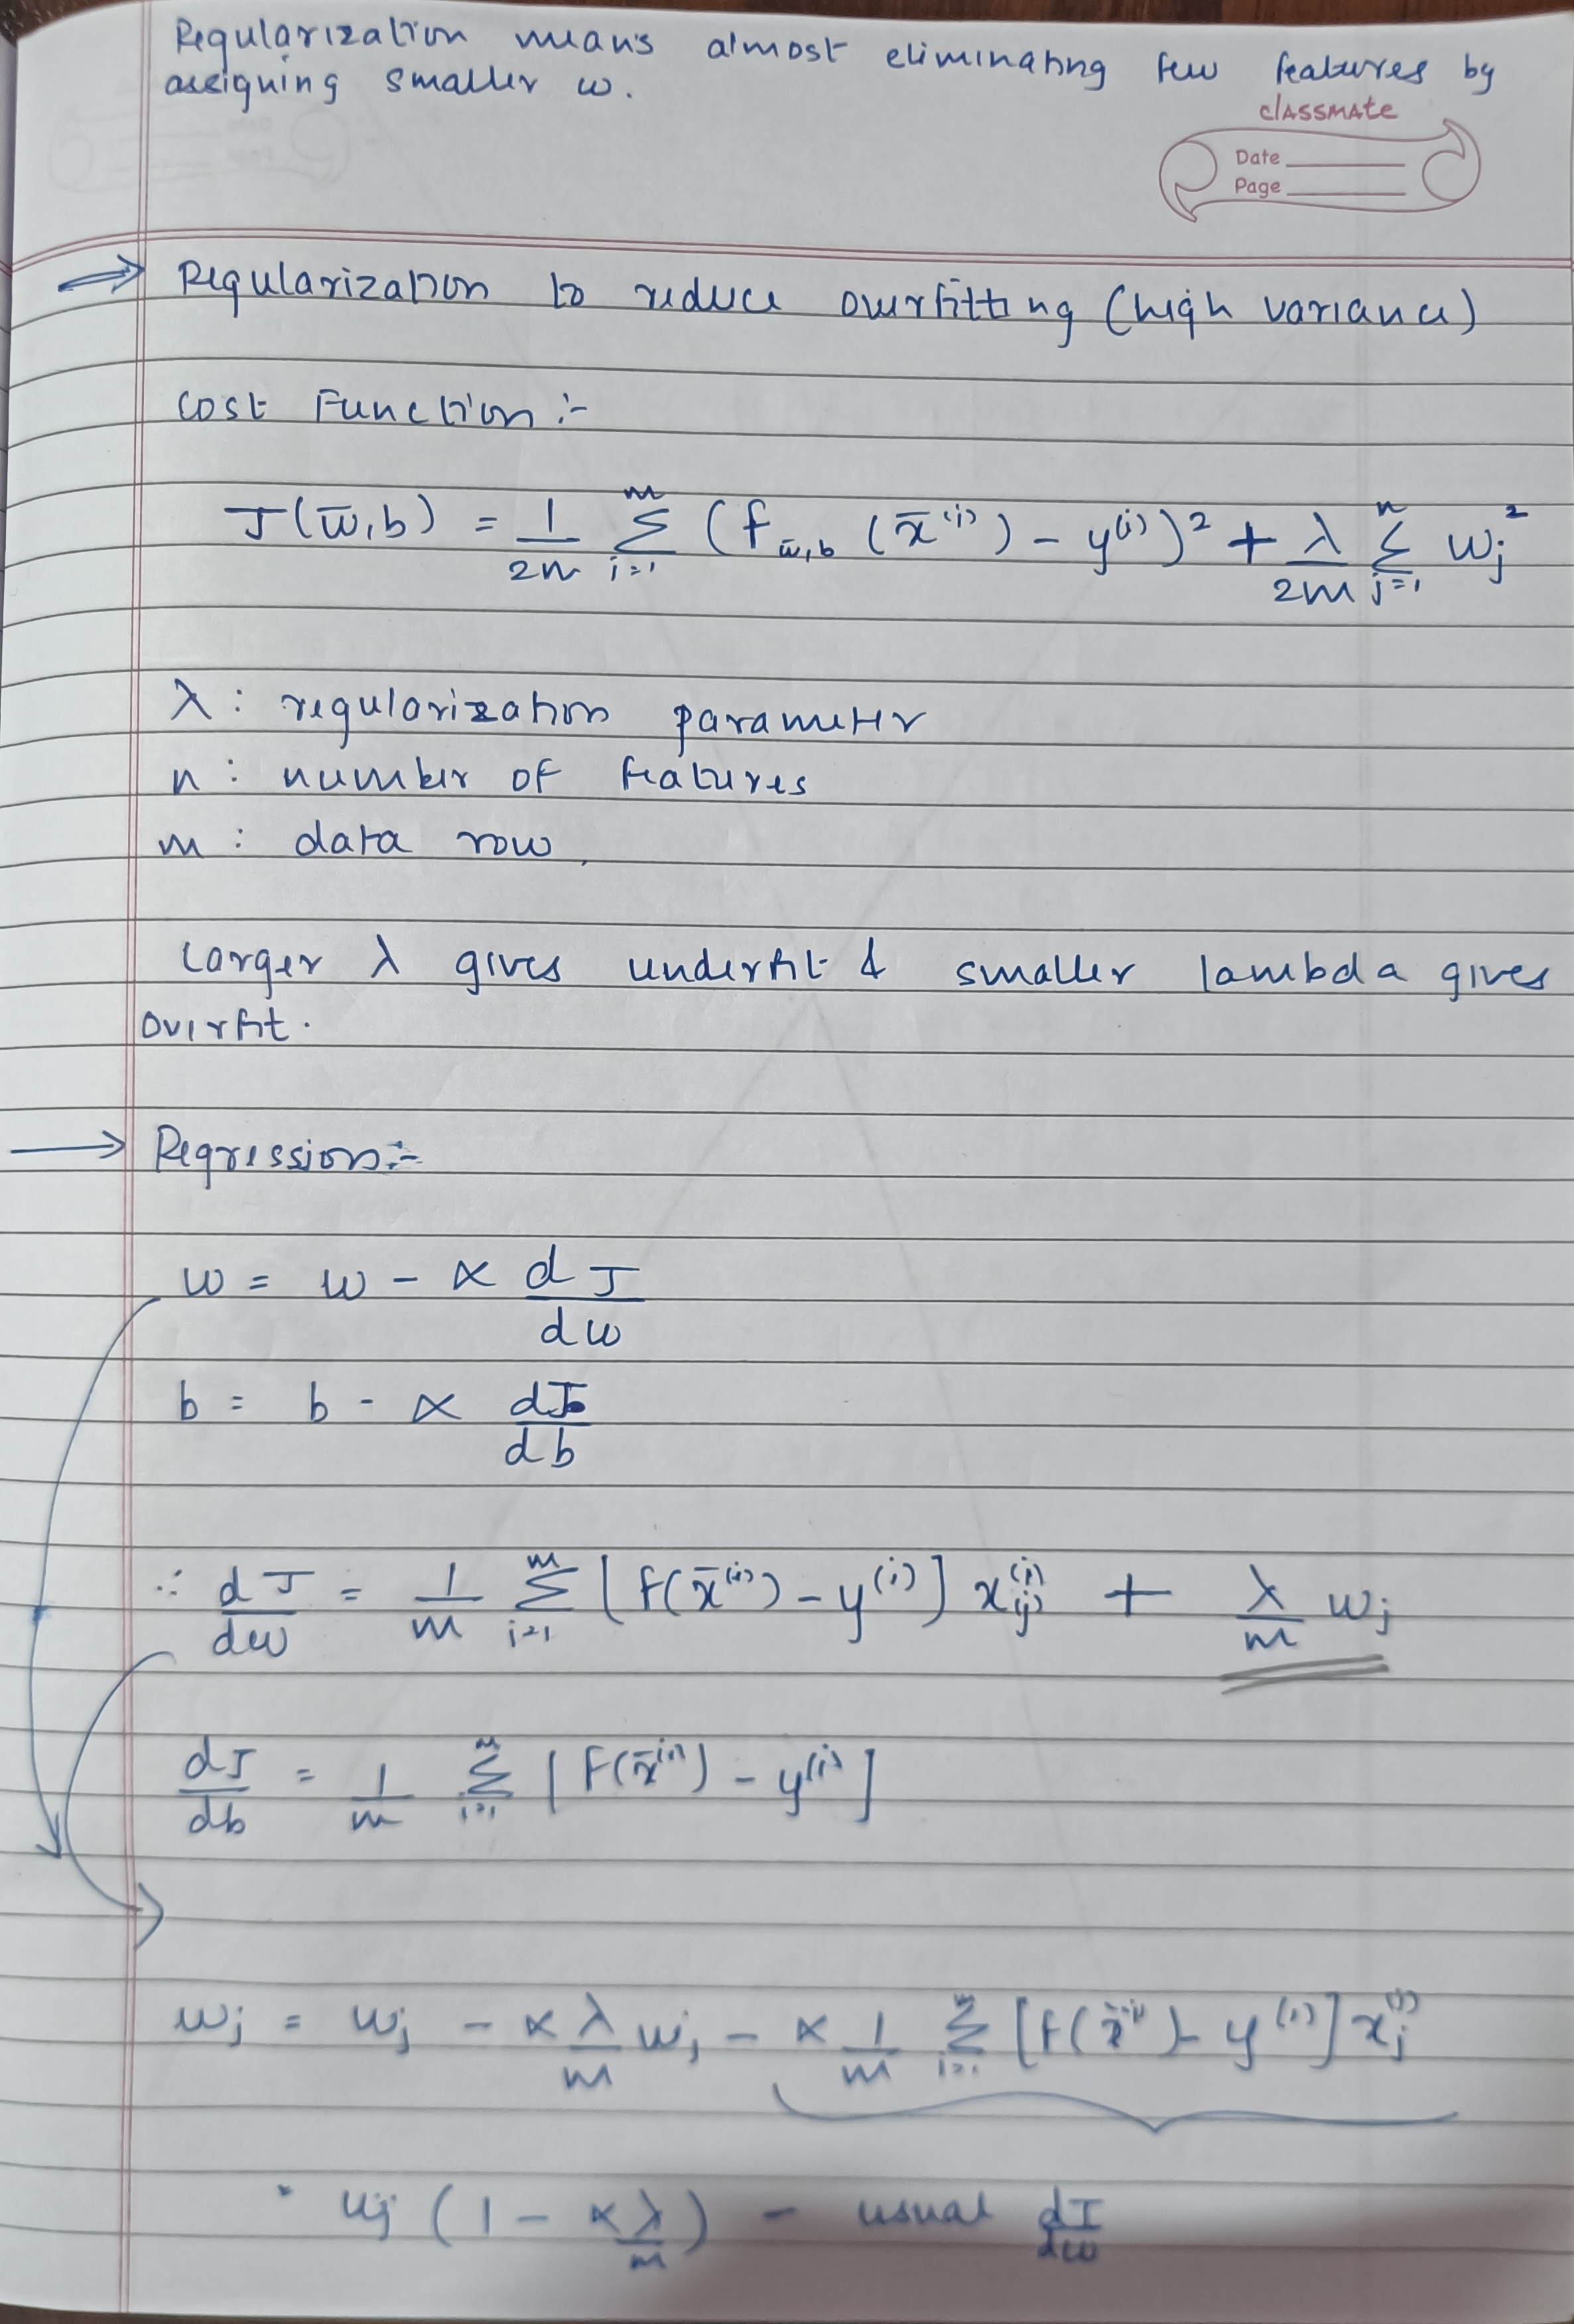 Regularization means almost eliminating few features by
assigning smaller w.
classmate
Date
Page
⇒ Regularization to reduce overfitting (high variance)
Cost Function :-
J(w̄,b) = 1/2m Σ_{i=1}^{m} (f_{w̄,b} (x̄^(i)) - y^(i))² + λ/2m Σ_{j=1}^{n} w_j²
λ : regularization parameter
n : number of features
m : data row
Larger λ gives underfit & smaller lambda gives
overfit.
→ Regression:-
w = w - α dJ/dw
b = b - α dJ/db
∴ dJ/dw = 1/m Σ_{i=1}^{m} [f(x̄^(i)) - y^(i)] x_j^(i) + λ/m w_j
dJ/db = 1/m Σ_{i=1}^{m} [f(x̄^(i)) - y^(i)]
w_j = w_j - α λ/m w_j - α 1/m Σ_{i=1}^{m} [f(x̄^(i)) - y^(i)] x_j^(i)
w_j (1 - α λ/m) - usual dJ/dw